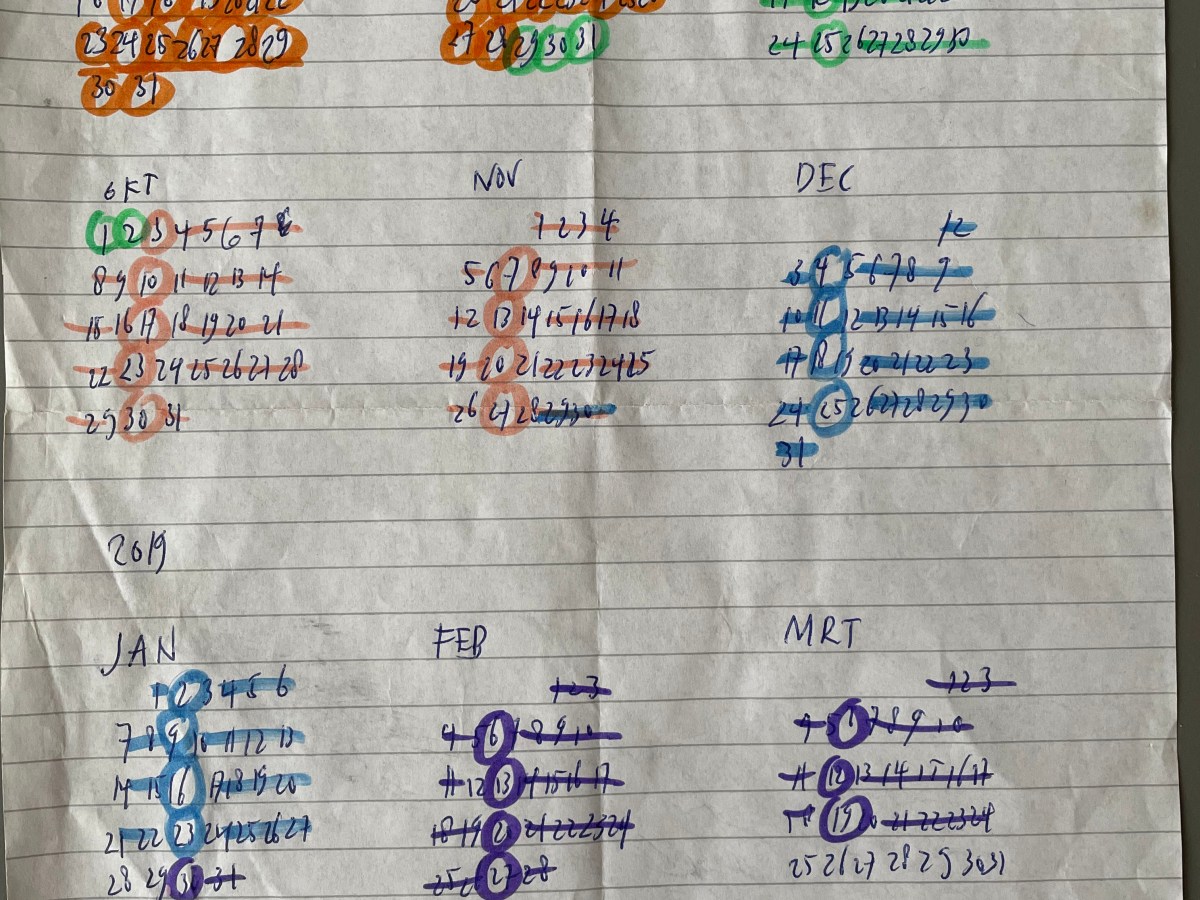 23 24 25 26 27 28 29
27 28 29 30 31
24 25 26 27 28 29 30
30 31
OKT
1 2 3 4 5 6 7
8 9 10 11 12 13 14
15 16 17 18 19 20 21
22 23 24 25 26 27 28
29 30 31
NOV
1 2 3 4
5 6 7 8 9 10 11
12 13 14 15 16 17 18
19 20 21 22 23 24 25
26 27 28 29 30
DEC
1 2
3 4 5 6 7 8 9
10 11 12 13 14 15 16
17 18 19 20 21 22 23
24 25 26 27 28 29 30
31
2019
JAN
1 2 3 4 5 6
7 8 9 10 11 12 13
14 15 16 17 18 19 20
21 22 23 24 25 26 27
28 29 30 31
FEB
1 2 3
4 5 6 7 8 9 10
11 12 13 14 15 16 17
18 19 20 21 22 23 24
25 26 27 28
MRT
1 2 3
4 5 6 7 8 9 10
11 12 13 14 15 16 17
19 20 21 22 23 24
25 26 27 28 29 30 31